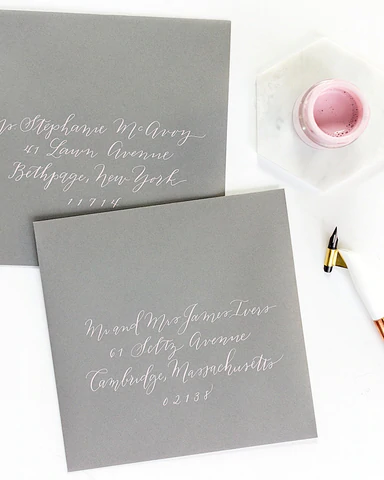 Stephanie McAvoy
41 Lawn Avenue
Bethpage, New York
11714
Mr and Mrs James Ivers
61 Seltz Avenue
Cambridge, Massachusetts
02138